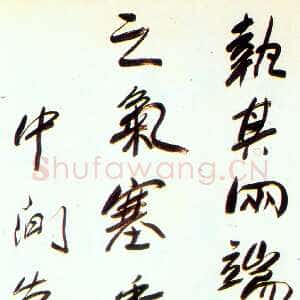 執其兩端
之氣塞
中間
Shufawang.CN